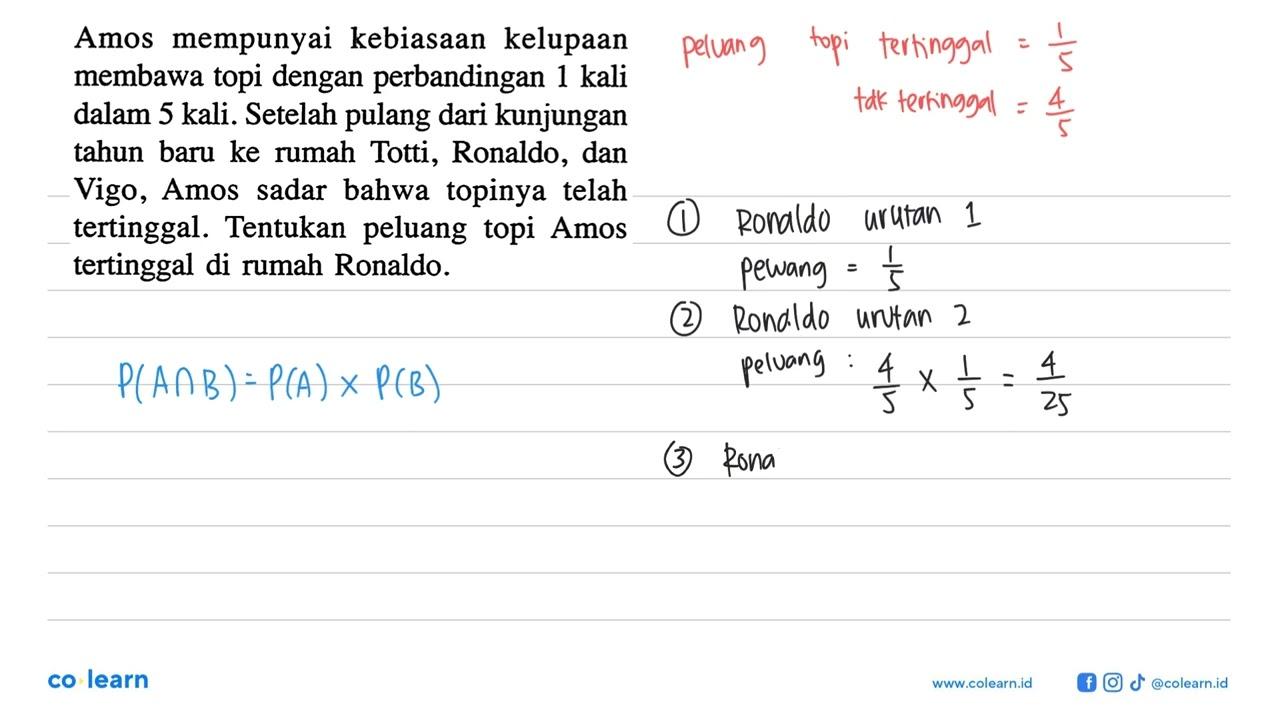 Amos mempunyai kebiasaan kelupaan
membawa topi dengan perbandingan 1 kali
dalam 5 kali. Setelah pulang dari kunjungan
tahun baru ke rumah Totti, Ronaldo, dan
Vigo, Amos sadar bahwa topinya telah
tertinggal. Tentukan peluang topi Amos
tertinggal di rumah Ronaldo.
P(A∩B) = P(A) × P(B)
peluang topi tertinggal = 1/5
tdk tertinggal = 4/5
① Ronaldo urutan 1
peluang = 1/5
② Ronaldo urutan 2
peluang : 4/5 × 1/5 = 4/25
③ Rona
co learn
www.colearn.id
@colearn.id